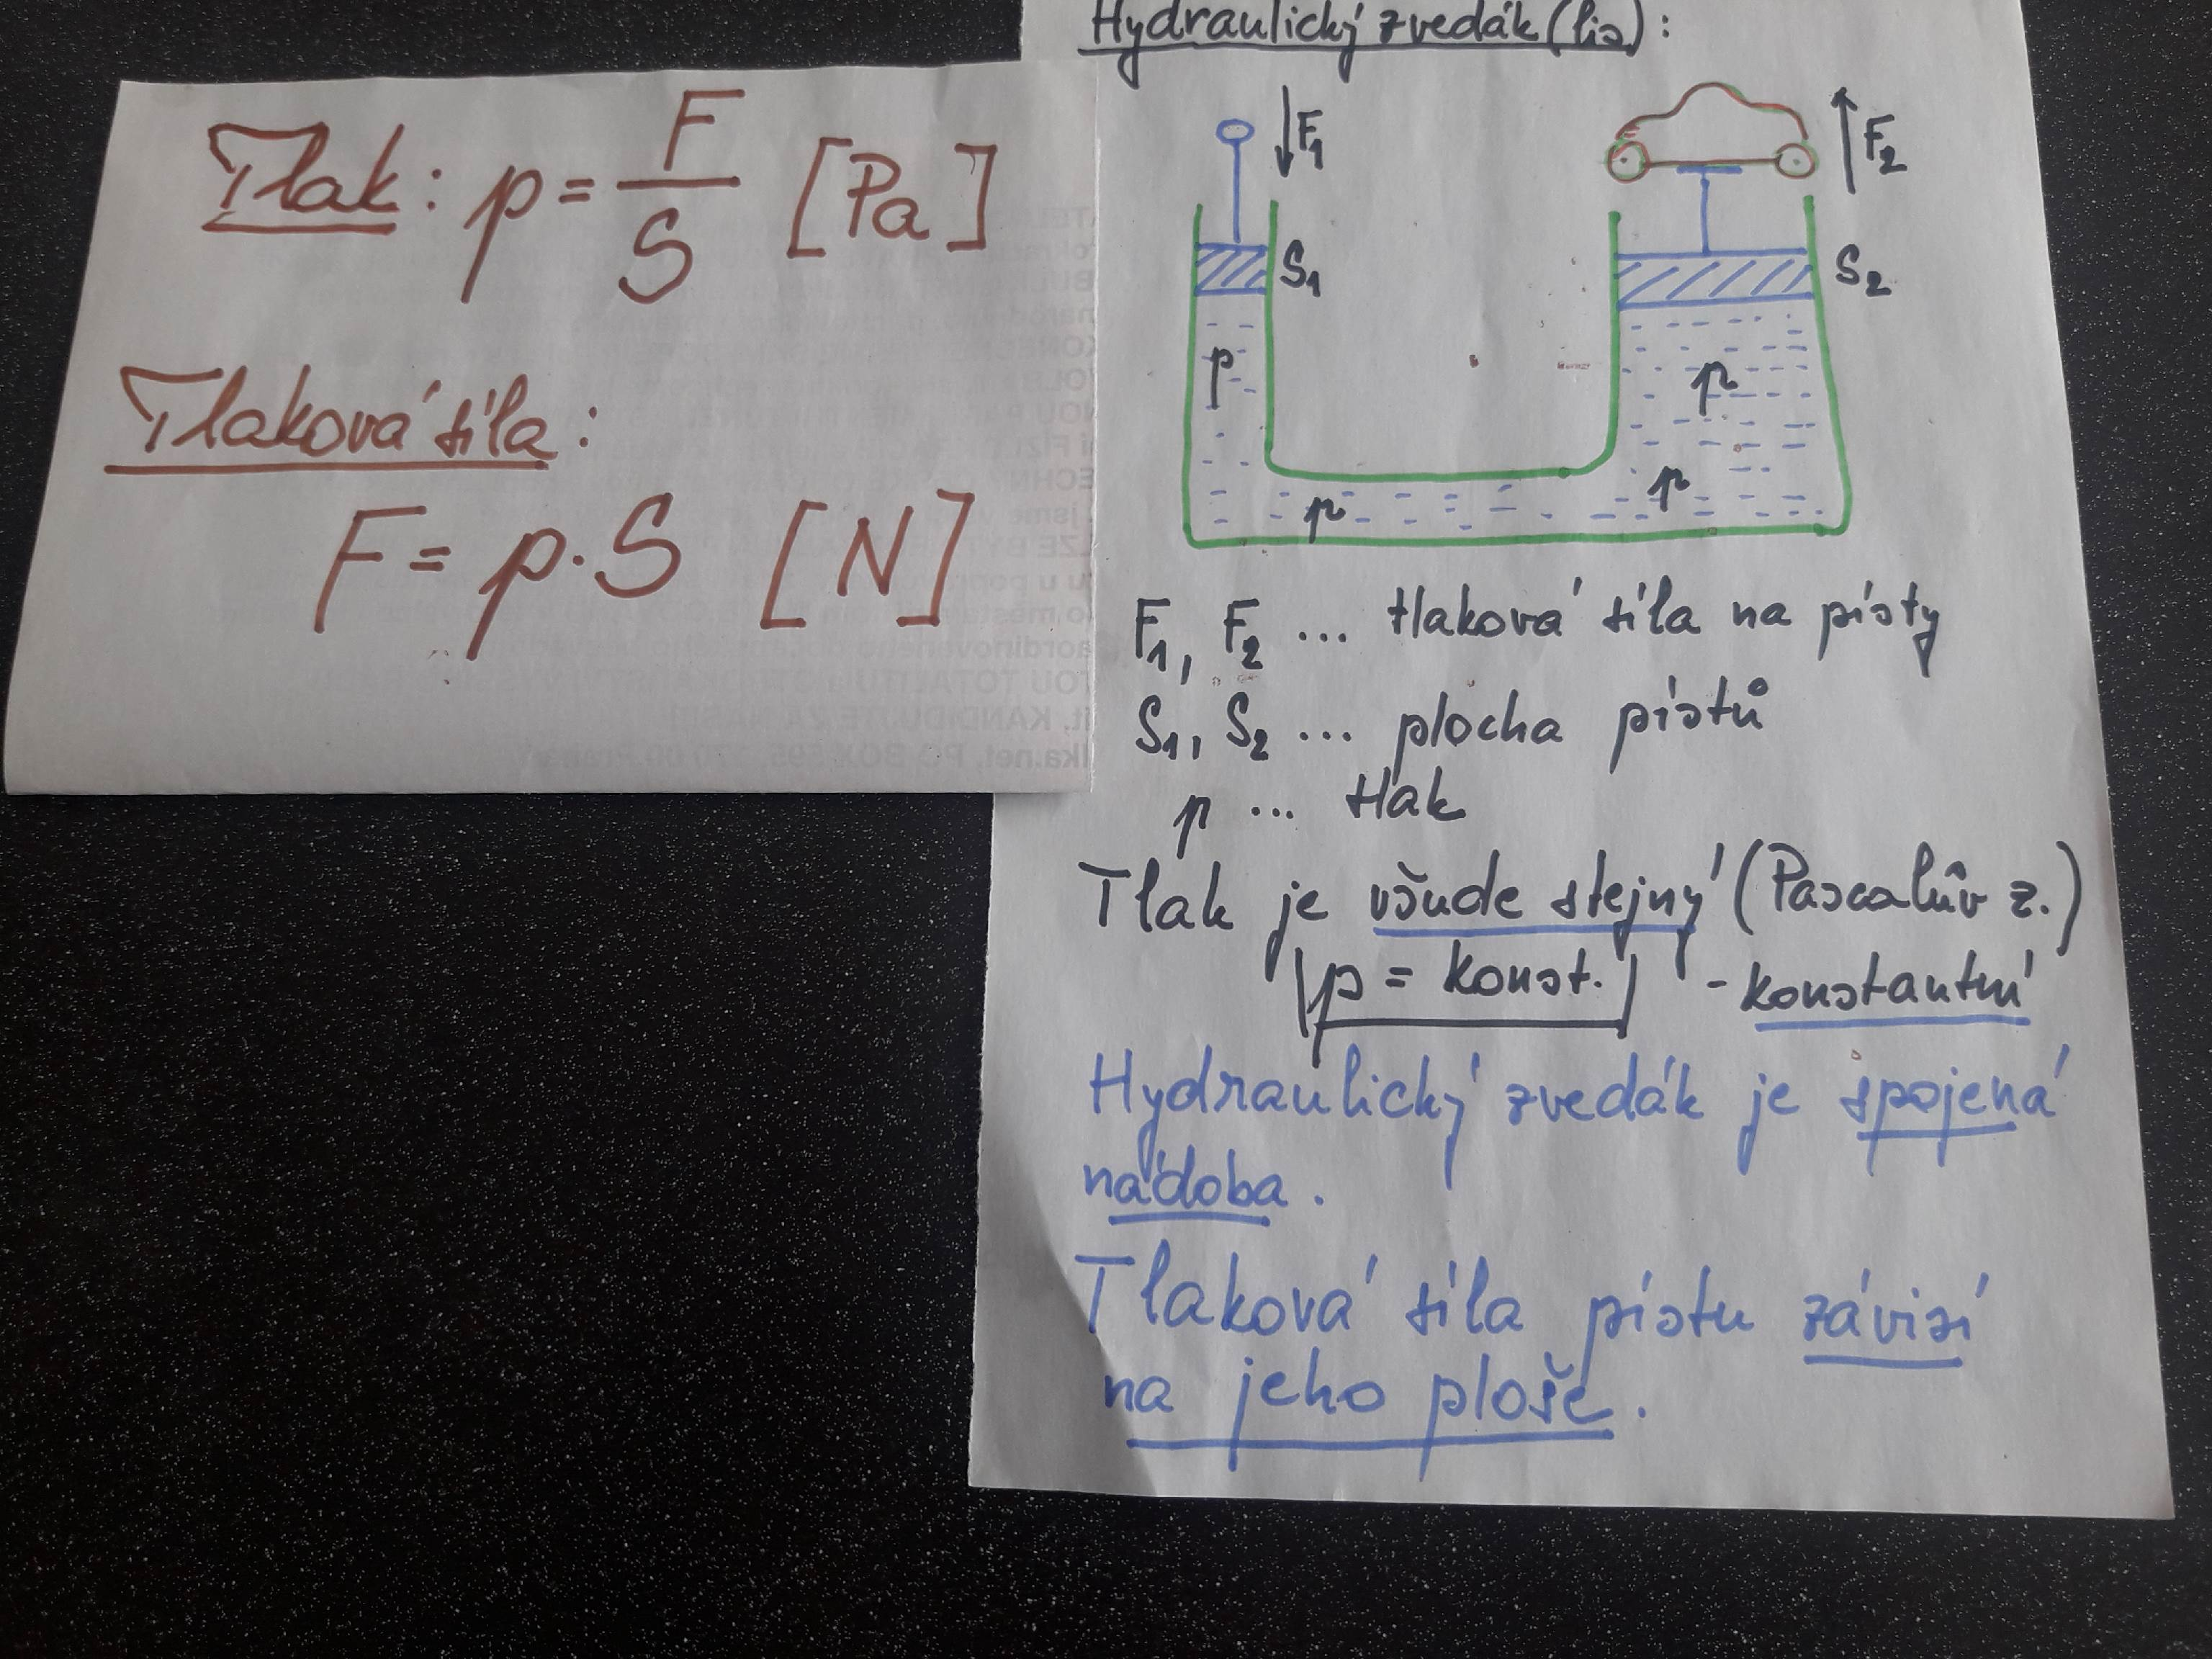 Tlak: p = F/S [Pa]
Tlaková síla:
F = p · S [N]
Hydraulický zvedák (lis):
F₁
F₂
S₁
S₂
p
p
p
p
F₁, F₂ ... tlaková síla na písty
S₁, S₂ ... plocha pístů
p ... tlak
Tlak je všude stejný (Pascalův z.)
p = konst. - konstantní
Hydraulický zvedák je spojená
nádoba.
Tlaková síla pístu závisí
na jeho ploše.